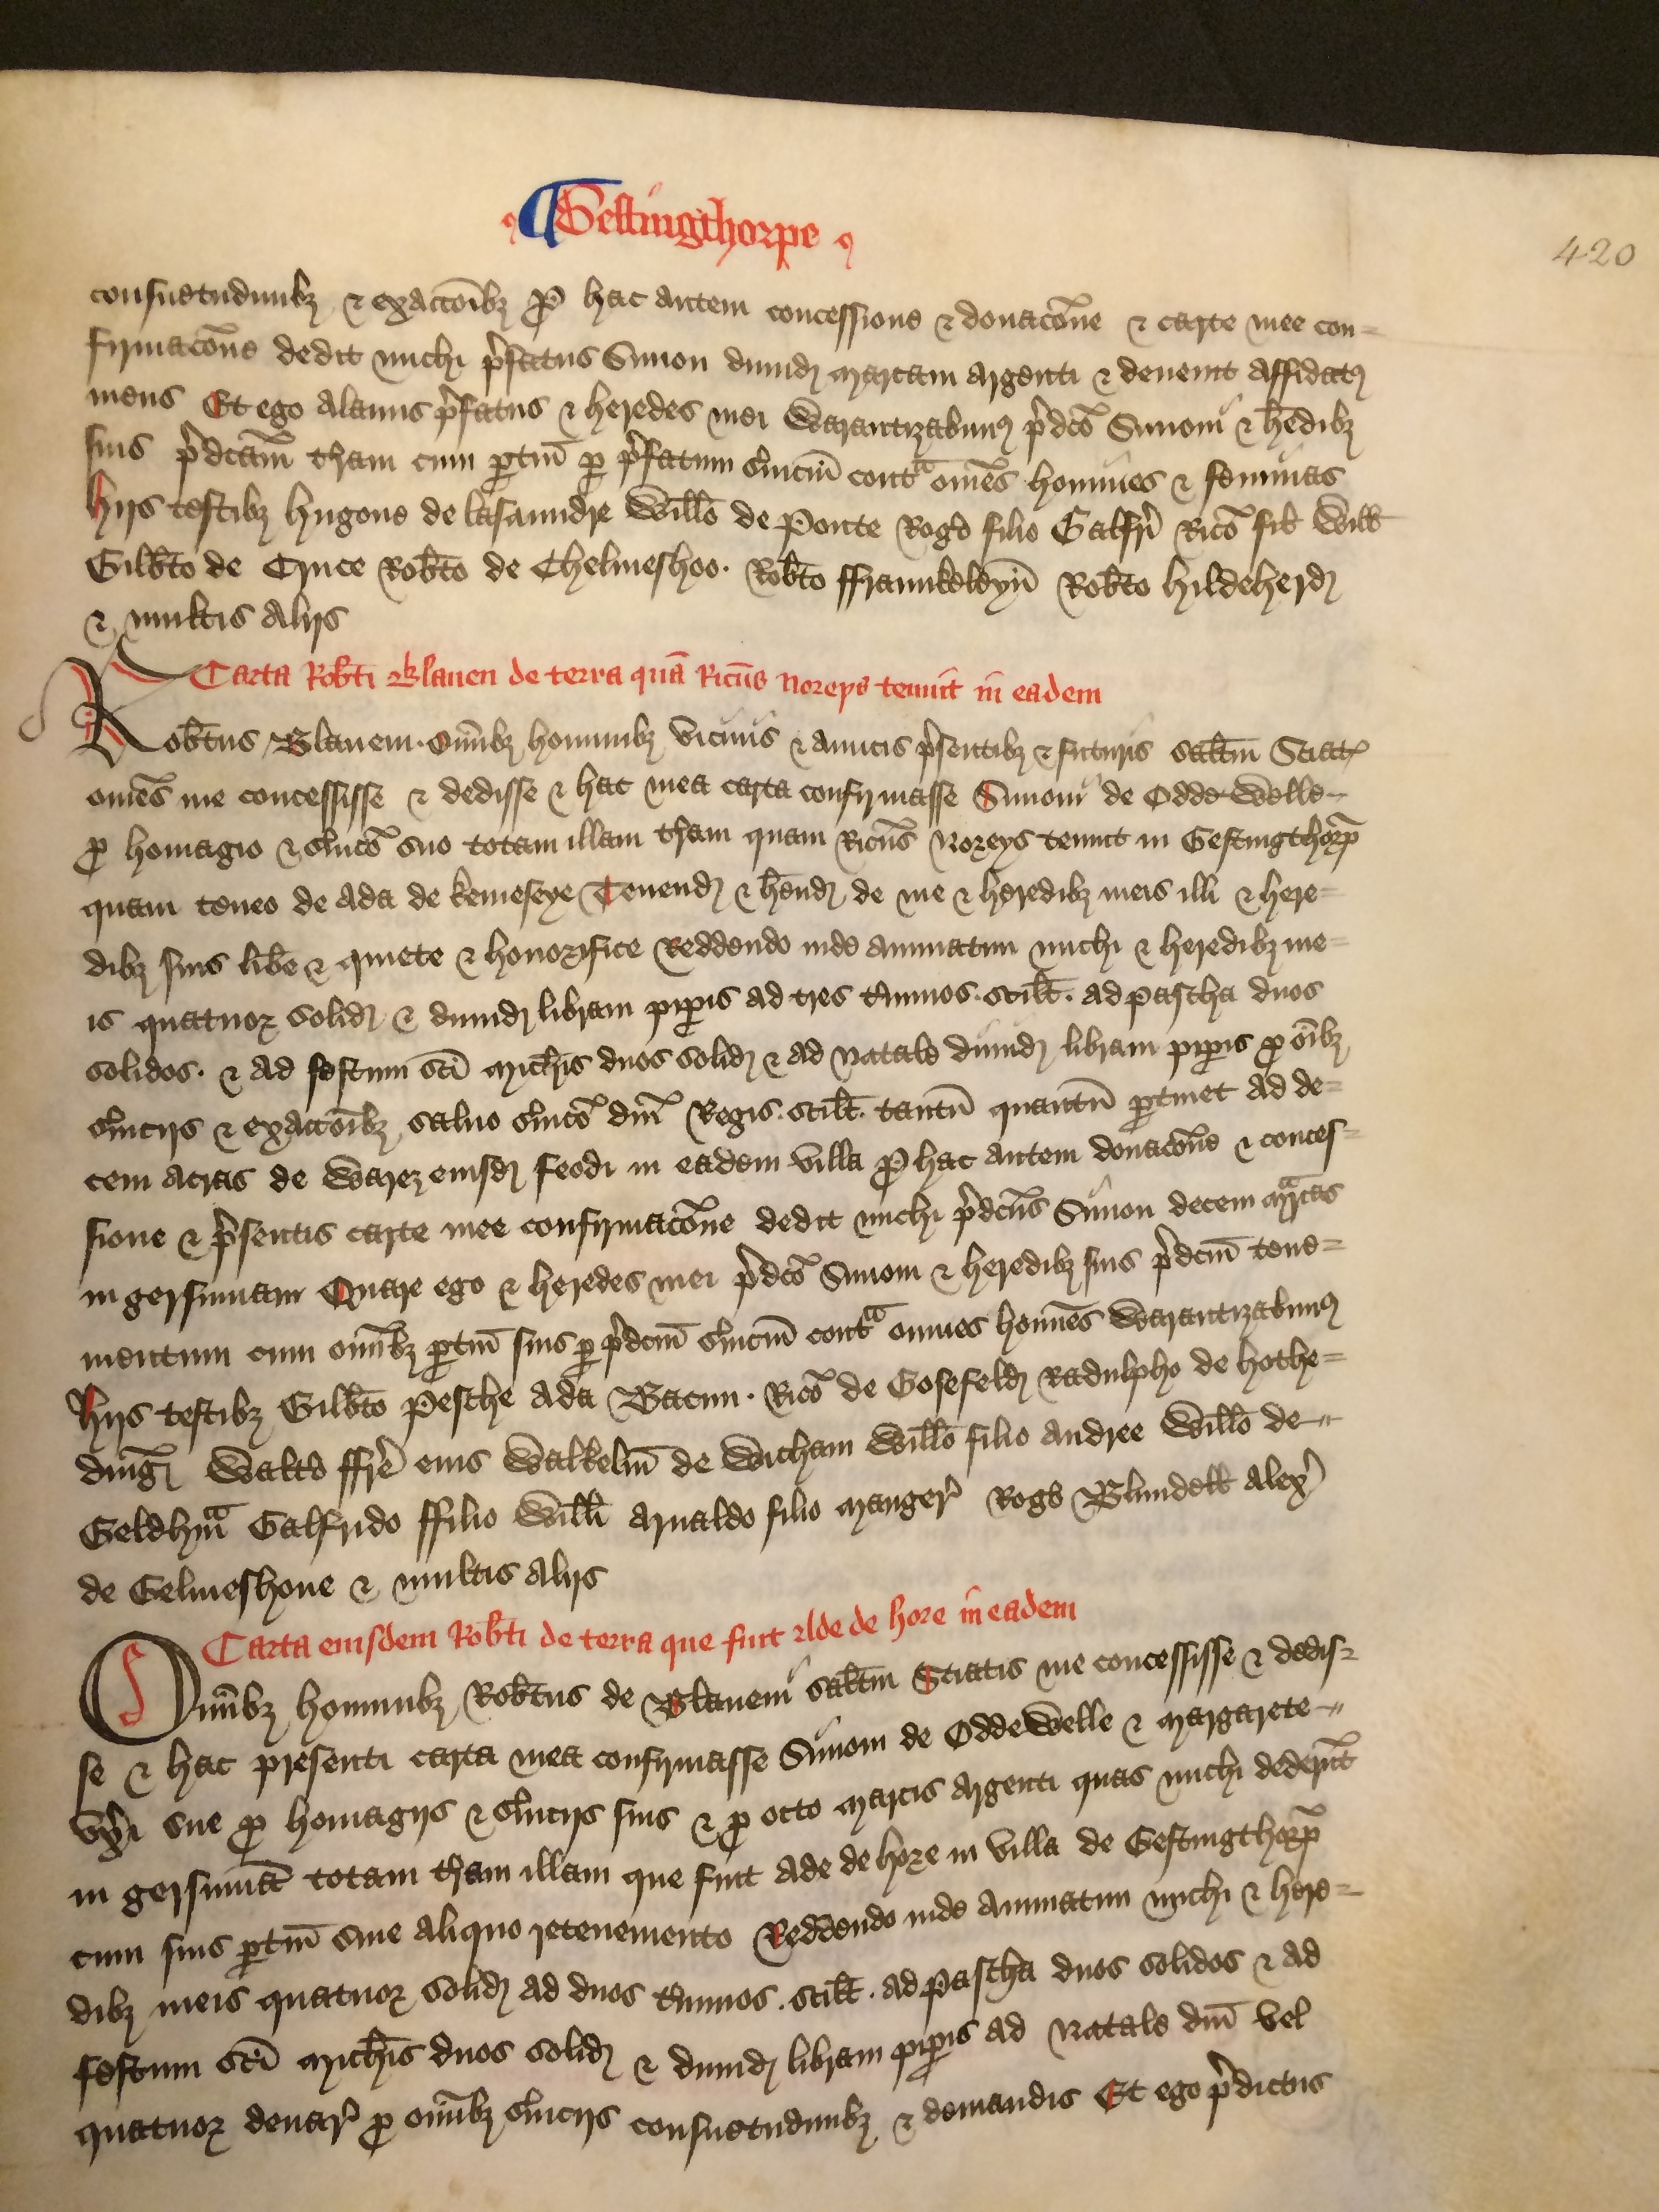 ¶ Gestingthorpe
420
consuetudinibꝫ ⁊ exaccōibꝫ ꝓ hac autem concessione ⁊ donacōne ⁊ carte mee con=
firmacōne dedit michi p̉fatus Simon dimidꝭ marcam argenti ⁊ devenit affidatꝰ
meus Et ego Alanus p̉fatus ⁊ heredes mei Warantizabimꝰ p̉dc̄o Simoni ⁊ hēdibꝫ
suis p̉dcām t̉ram cum ꝑtin̄ ꝑ p̉fatum s̉uiciū contᵃ om̄es homines ⁊ feminas
hijs testibꝫ hugone de Willō de Ponte Rog̉o filio Galfr̉i Ric̄o fil̄ Will̄i
Gilb̄to de Cruce Rob̄to de Chelmeshoo. Rob̄to ffraunkeleyn̄ Rob̄to hildeherdꝭ
⁊ multis alijs
Carta Rob̄ti Blauen de terra quā Ric̄us Noreys tenuit in eadem
Rob̄tus Blauem. Om̄ibꝫ hominibꝫ vicinis ⁊ amicis p̉sentibꝫ ⁊ futuris salt̄m Sciatꝭ
om̄es me concessisse ⁊ dedisse ⁊ hac mea carta confirmasse Simoni de Oddewelle
ꝓ homagio ⁊ s̉uic̄o suo totam illam t̉ram quam Ric̄us Noreys tenuit in Gestingthorꝑ
quam teneo de Ada de kemeseye Tenendꝭ ⁊ hēndꝭ de me ⁊ heredibꝫ meis illi ⁊ here=
dibꝫ suis lib̉e ⁊ quiete ⁊ honorifice Reddendo inde annuatim michi ⁊ heredibꝫ me=
is quatuor solidꝭ ⁊ dimidꝭ libram pipis ad tres t̉minos. scil̄t. ad pascha duos
solidos. ⁊ ad festum sc̄i Mich̄is duos solidꝭ ⁊ ad Natale dimidꝭ libram pipis ꝓ oībꝫ
s̉uicijs ⁊ exaccōibꝫ salvo s̉uic̄o dn̄i Regis. scil̄t. tantū quantū ꝑtinet ad de=
cem acras de Warez eiusdꝭ feodi in eadem villa ꝓ hac autem donacōne ⁊ conces=
sione ⁊ p̉sentis carte mee confirmacōne dedit michi p̉dc̄us Simon decem mᵃrcas
in gersumam Quare ego ⁊ heredes mei p̉dc̄o Simoni ⁊ heredibꝫ suis p̉dcm̄ tene=
mentum cum om̄ibꝫ ꝑtin̄ suis ꝑ p̉dcm̄ s̉uiciū contᵃ omnes hom̄es Warantizabimꝰ
hijs testibꝫ Gilb̄to Pesche Ada Bacun. Ric̄o de Gosefeldꝭ Radulpho de hothe=
dingꝭ Walt̉o ffr̉e eius Walkelin̄ de Wicham Willō filio Andree Willō de
Geldhmᵃ Galfrido ffilio Will̄i Arnaldo filio Mauger̉ Rog̉o Blundell Alex̉
de Gelmeshoue ⁊ multis alijs
Carta eiusdem Rob̄ti de terra que fuit Ade de hore in eadem
Om̄ibꝫ hominibꝫ Rob̄tus de Blauem salt̄m Sciatis me concessisse ⁊ dedis=
se ⁊ hac presenti carta mea confirmasse Simoni de Oddewelle ⁊ Margarete
vx̉i sue ꝓ homagijs ⁊ s̉uicijs suis ⁊ ꝓ octo marcis argenti quas michi dedert̄
in gersumā totam t̉ram illam que fuit Ade de hore in villa de Gestingthorꝑ
cum suis ꝑtin̄ sine aliquo retenemento Reddendo inde annuatim michi ⁊ here=
dibꝫ meis quatuor solidꝭ ad duos t̉minos. scil̄t. ad pascha duos solidos ⁊ ad
festum sc̄i Mich̄is duos solidꝭ ⁊ dimidꝭ libram pipis ad Natale dn̄i vel
quatuor denar̉ ꝓ om̄ibꝫ s̉uicijs consuetudinibꝫ ⁊ demandis Et ego p̉dictus